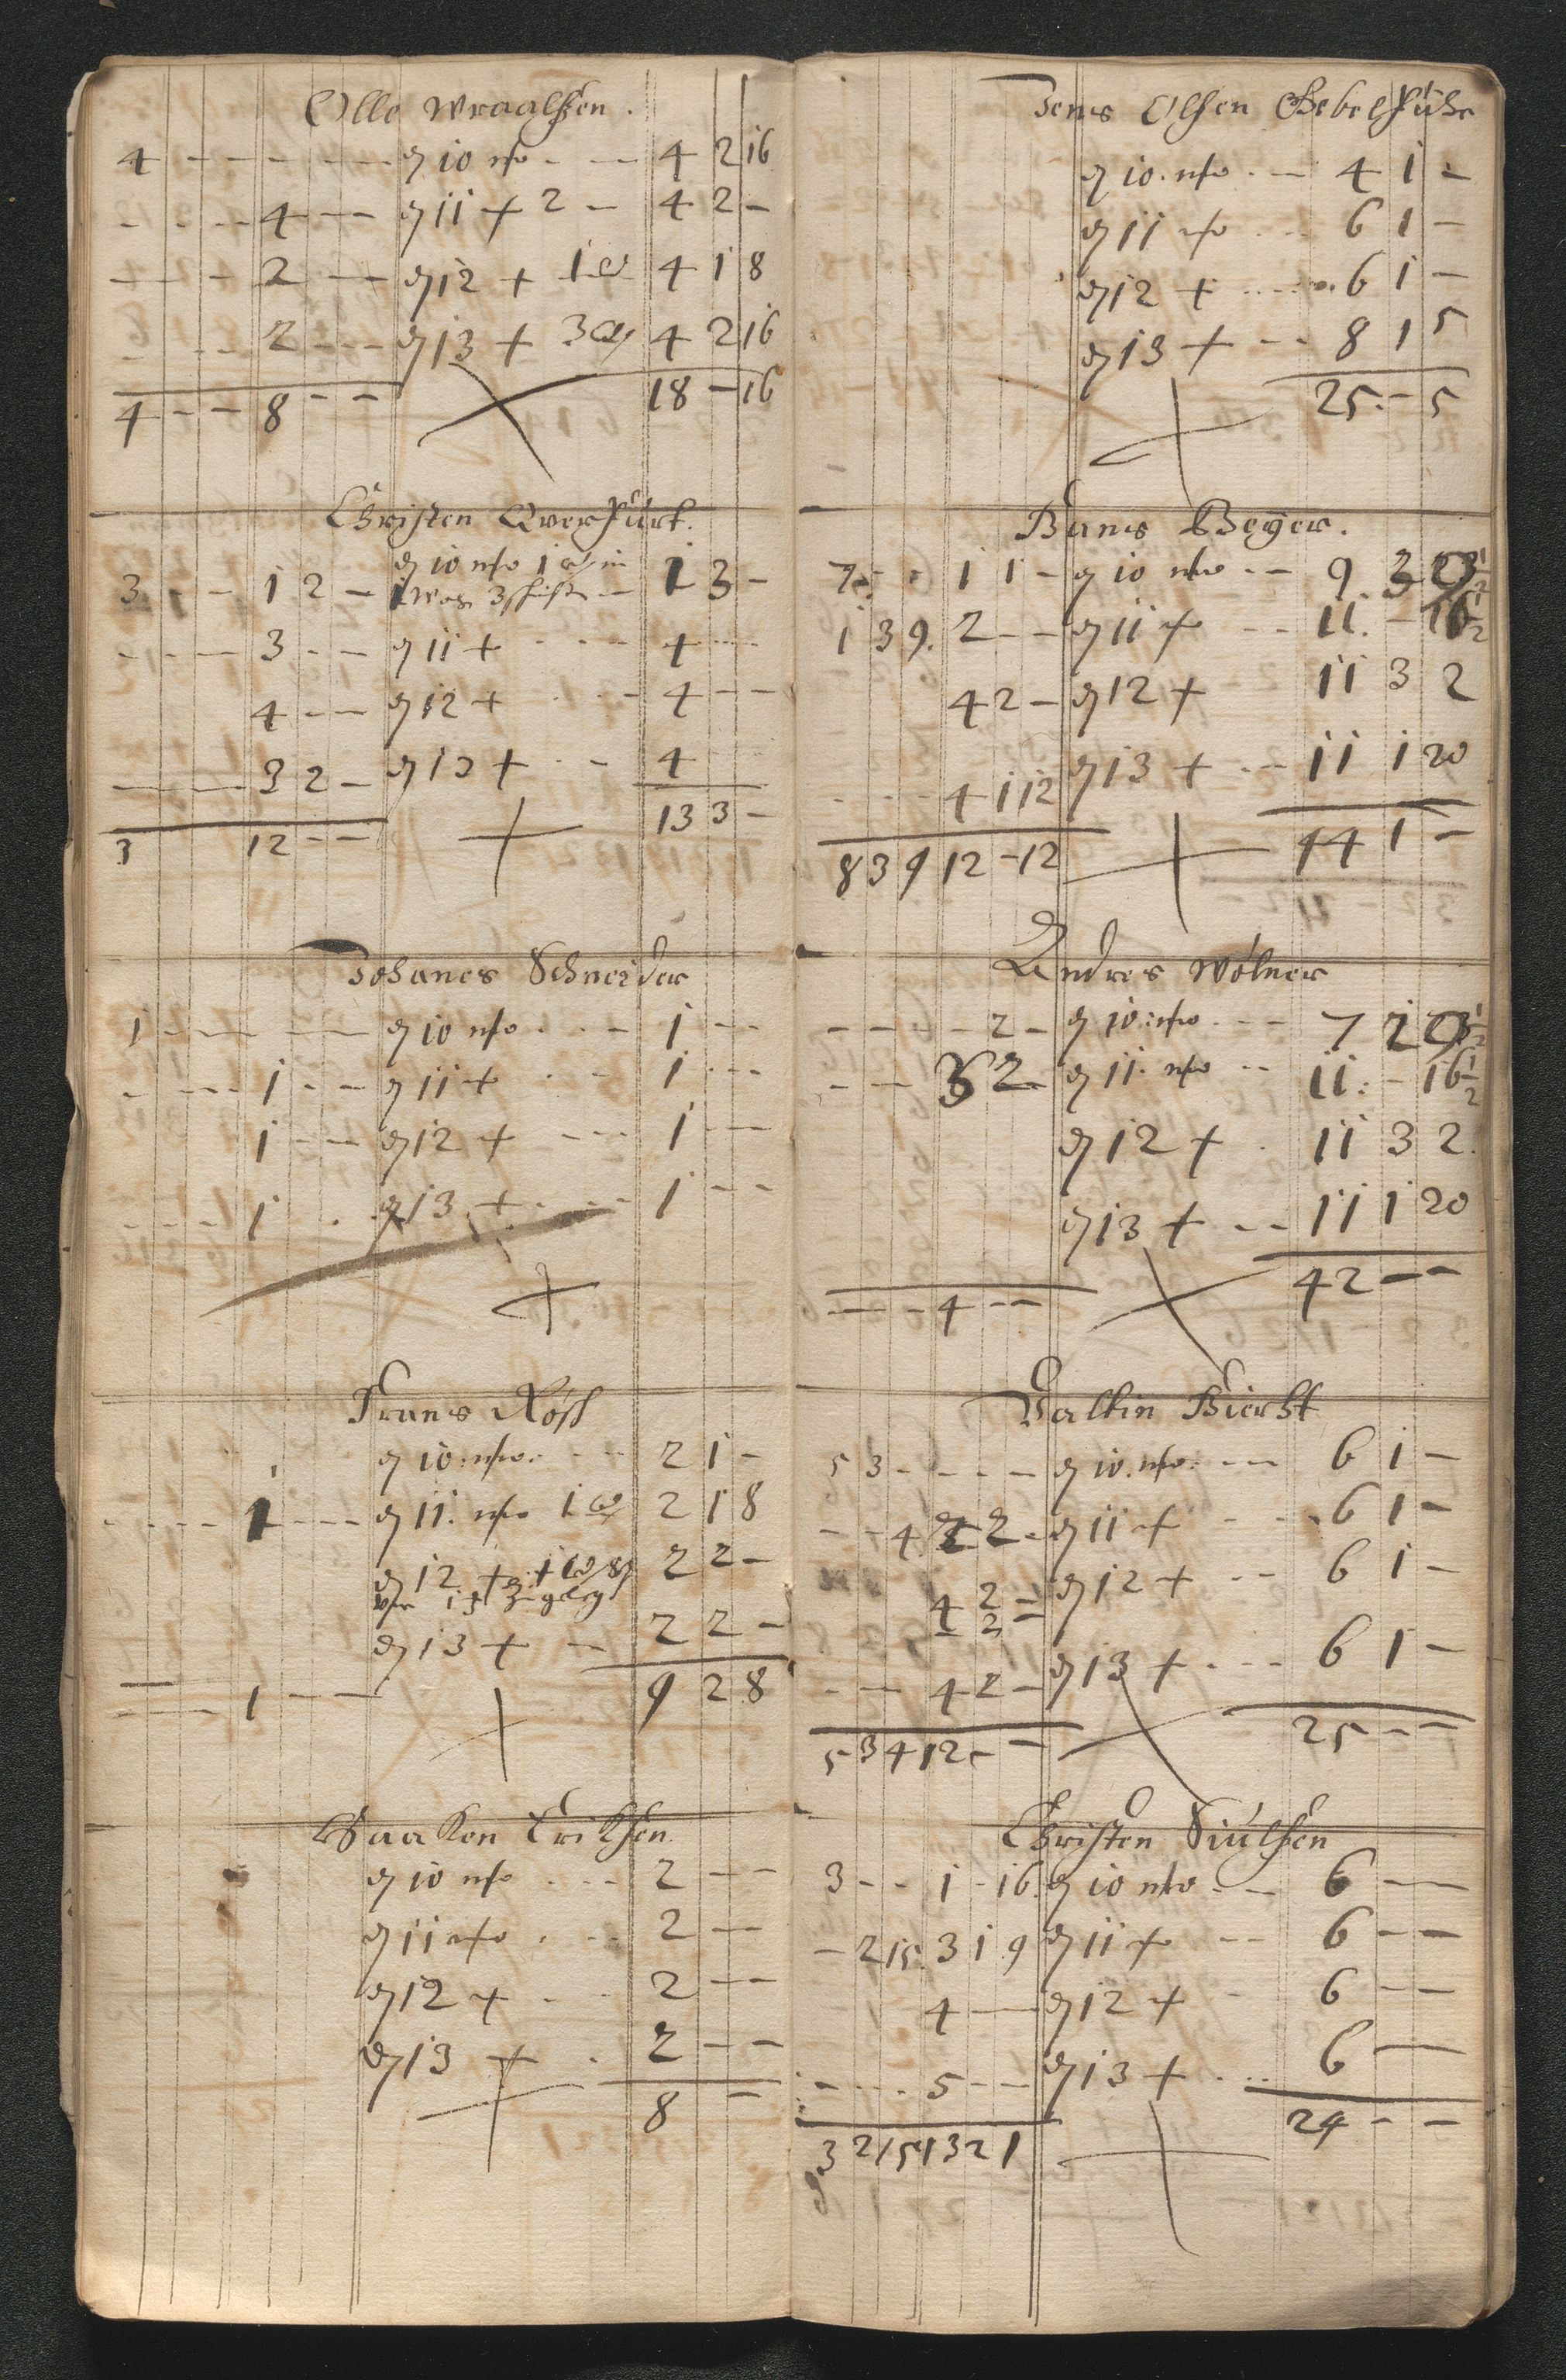 Olle Wraalsen.
4 - - - - - - 10 - - 4 2 16
- - - - 4 - - 11 + 2 - 4 2 -
- - - 2 - - 12 + 1 4 1 8
- - - 2 - - - 13 + 3 4 2 16
4 - - 8 - - 18 - 16
Christen Qverfürt.
3 - - 1 2 - 10 1 1 3 -
- - - 3 - - 11 + - - - 4 - -
4 - - 12 + - - - 4 - -
- - - 3 2 - 13 + - - 4
3 12 - - 13 3 -
Johanes Schneider
1 - - - - 10 - - - 1 - -
- - - 1 - - 11 + - - 1 - -
1 - - 12 + - - - 1 - -
- - - 1 - 13 + - - - 1 - -
Frans Rösch
10 - - - 2 1 -
- - - - 1 - - - 11 1 2 1 8
12 + 2 2 -
13 + - 2 2 -
- - - 1 - - 9 2 8
Haaken Eriksen
10 - - - 2 - -
11 - - - 2 - -
12 + - - 2 - -
13 + - 2 - -
8 -
Jens Olsen Gebelfuhr
10 - - 4 1 -
11 - - - 6 1 -
12 + - - - 6 1 -
13 + - - 8 1 5
25 - 5
Hans Beyer.
7 - - 1 1 - 10 - - 9 3
1 3 9 2 - - 11 + - - 11 - 16 1/2
4 2 - 12 + 11 3 2
- - - 4 1 12 13 + - - 11 1 20
8 3 9 12 - 12 44 1 -
Andres Wölner
- - - - 2 - 10 - - 7 2
- - - 3 2 - 11 - - 11 - 16 1/2
12 + - 11 3 2
13 + - - 11 1 20
- - - 4 - - 42 - -
Valtin Hierht
5 3 - - - - 10 - - 6 1 -
- - 4 2 - 11 + - - - 6 1 -
4 2 - 12 + - - 6 1 -
- - - 4 2 - 13 + - - - 6 1 -
5 3 4 12 - - 25 - -
Christen Siulsen
3 - - 1 - 16 10 - - 6 - -
- 2 15 3 1 9 11 + - - 6 - -
4 - - 12 + - 6 - -
- - - 5 - - 13 + - - - 6 - -
3 2 15 13 2 1 24 - -